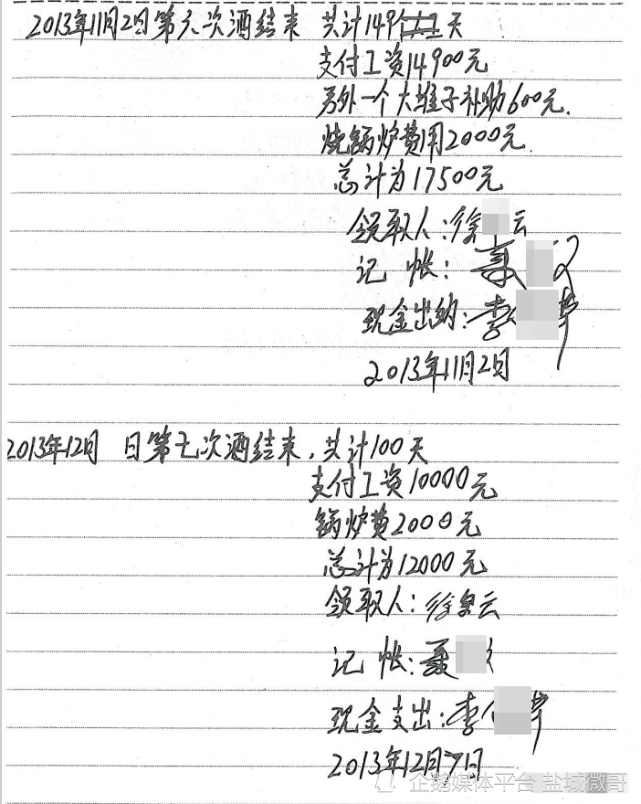 2013年11月2日第六次酒结束 共计149个工天
支付工资14900元
另外一个大堆子补助600元.
烧锅炉费用2000元.
总计为17500元
领取人:徐 云
记 帐:
现金出纳:李
2013年11月2日
2013年12月 日第七次酒结束,共计100天
支付工资10000元
锅炉费2000元
总计为12000元
领取人:徐 云
记 帐:聂
现金支出:李
2013年12月7日
企鹅媒体平台 盐城微哥